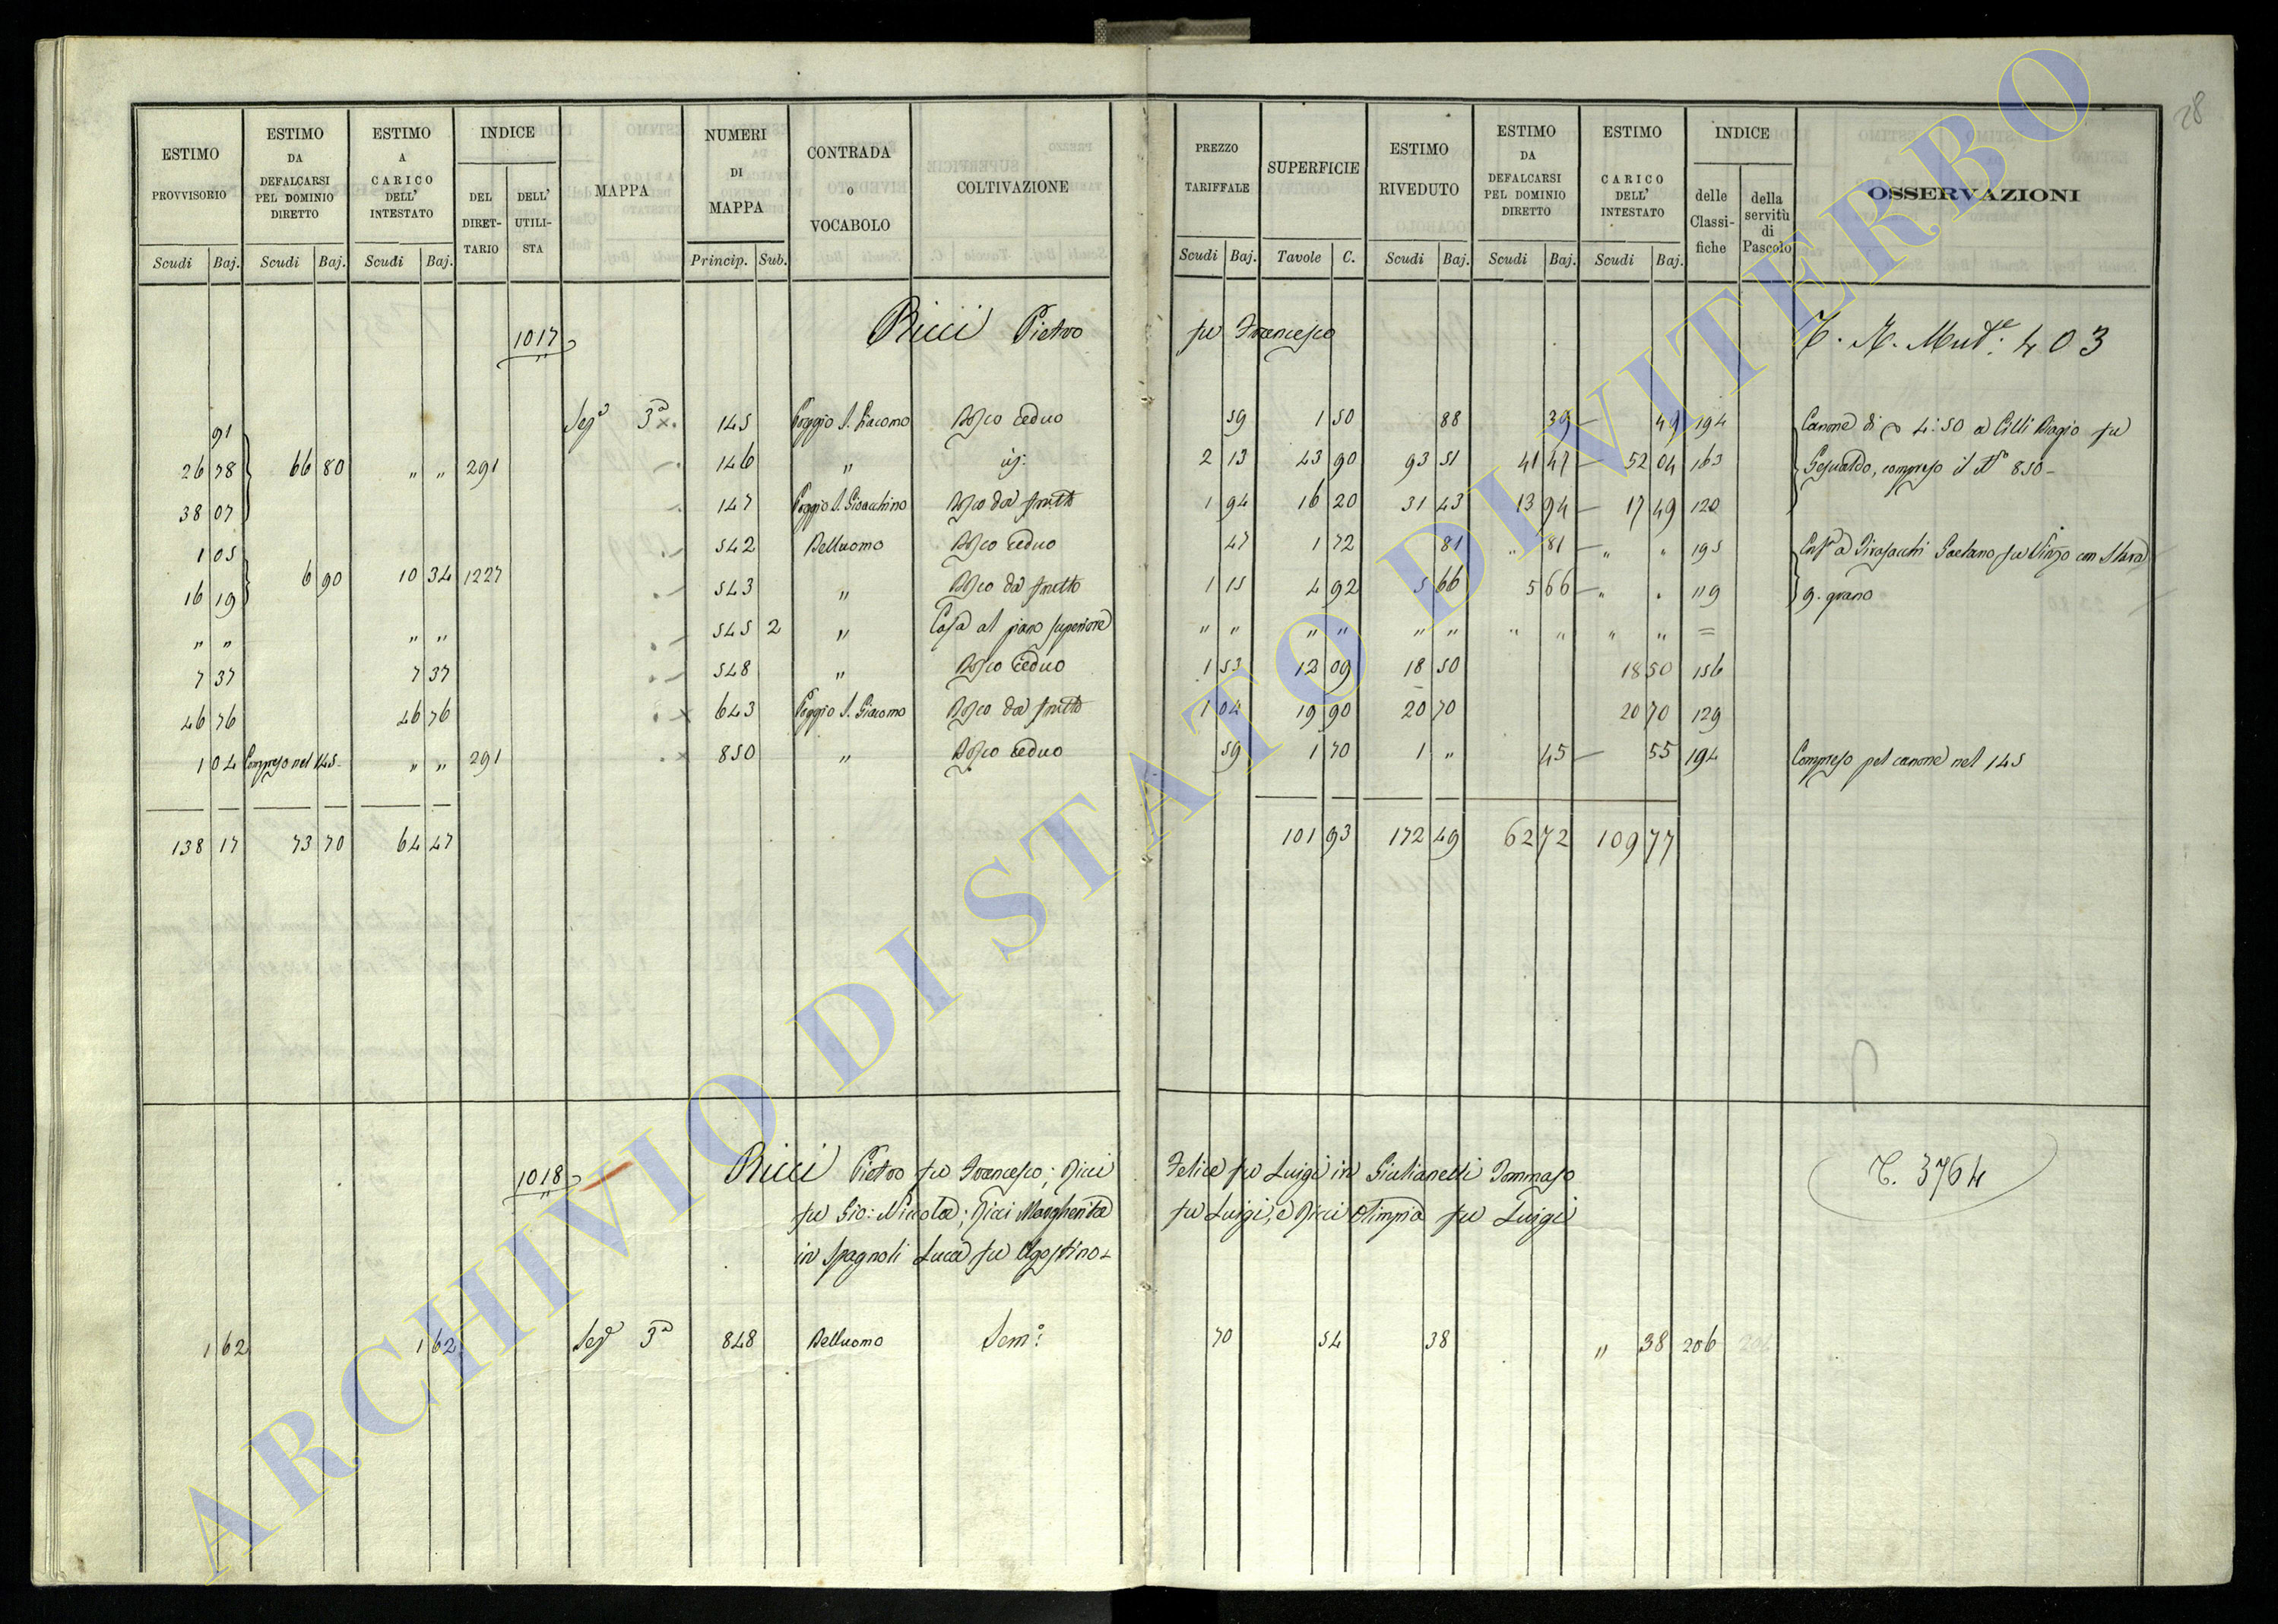 28
ESTIMO PROVVISORIO | ESTIMO DA DEFALCARSI PEL DOMINIO DIRETTO | ESTIMO A CARICO DELL' INTESTATO | INDICE | DEL DIRET-TARIO | DELL' UTILI-STA | MAPPA | NUMERI DI MAPPA | CONTRADA O VOCABOLO | COLTIVAZIONE | PREZZO TARIFFALE | SUPERFICIE | ESTIMO RIVEDUTO | ESTIMO DA DEFALCARSI PEL DOMINIO DIRETTO | ESTIMO CARICO DELL' INTESTATO | INDICE | delle Classi-fiche | della servitù di Pascolo | OSSERVAZIONI
Scudi Baj. Scudi Baj. Scudi Baj. Princip. Sub. Scudi Baj. Tavole C. Scudi Baj. Scudi Baj. Scudi Baj.
1017 Ricci Pietro fu Francesco 403
91 Sez.e 3a 145 Poggio S. Giacomo Bosco Ceduo 59 1 50 88 39 49 194 Canone di 4:50 a Cilli Biagio fu
26 78 66 80 " " 291 146 " id: 2 13 43 90 93 51 41 47 52 04 163 Gesualdo, compreso il N° 850
38 07 147 Poggio S. Gioacchino Bosco da frutto 1 94 16 20 31 43 13 94 17 49 120
1 05 542 Belluomo Bosco Ceduo 47 1 72 81 " 81 " " 195 Gaetano fu
16 19 6 90 10 34 1227 543 " Bosco da frutto 1 15 4 92 5 66 5 66 " " 119 9. grano
" " " " 545 2 " Casa al piano superiore " " " " " " " " " " =
7 37 7 37 548 " Bosco Ceduo 1 53 12 09 18 50 18 50 156
46 76 46 76 643 Poggio S. Giacomo Bosco da frutto 1 04 19 90 20 70 20 70 129
1 04 Compreso nel 145 " " 291 850 " Bosco Ceduo 59 1 70 1 " 45 55 194 Compreso pel canone nel 145
138 17 73 70 64 47 101 93 172 49 62 72 109 77
1018 Ricci Pietro fu Francesco; Ricci Felice fu Luigi in Giulianelli Tommaso T. 3764
fu Gio: Niccola; Ricci Margherita fu Luigi, e Ricci Olimpia fu Luigi
in Spagnoli Luca fu Agostino
1 62 1 62 Sez.e 3a 848 Belluomo Sem.o 70 54 38 " 38 206
ARCHIVIO DI STATO DI VITERBO